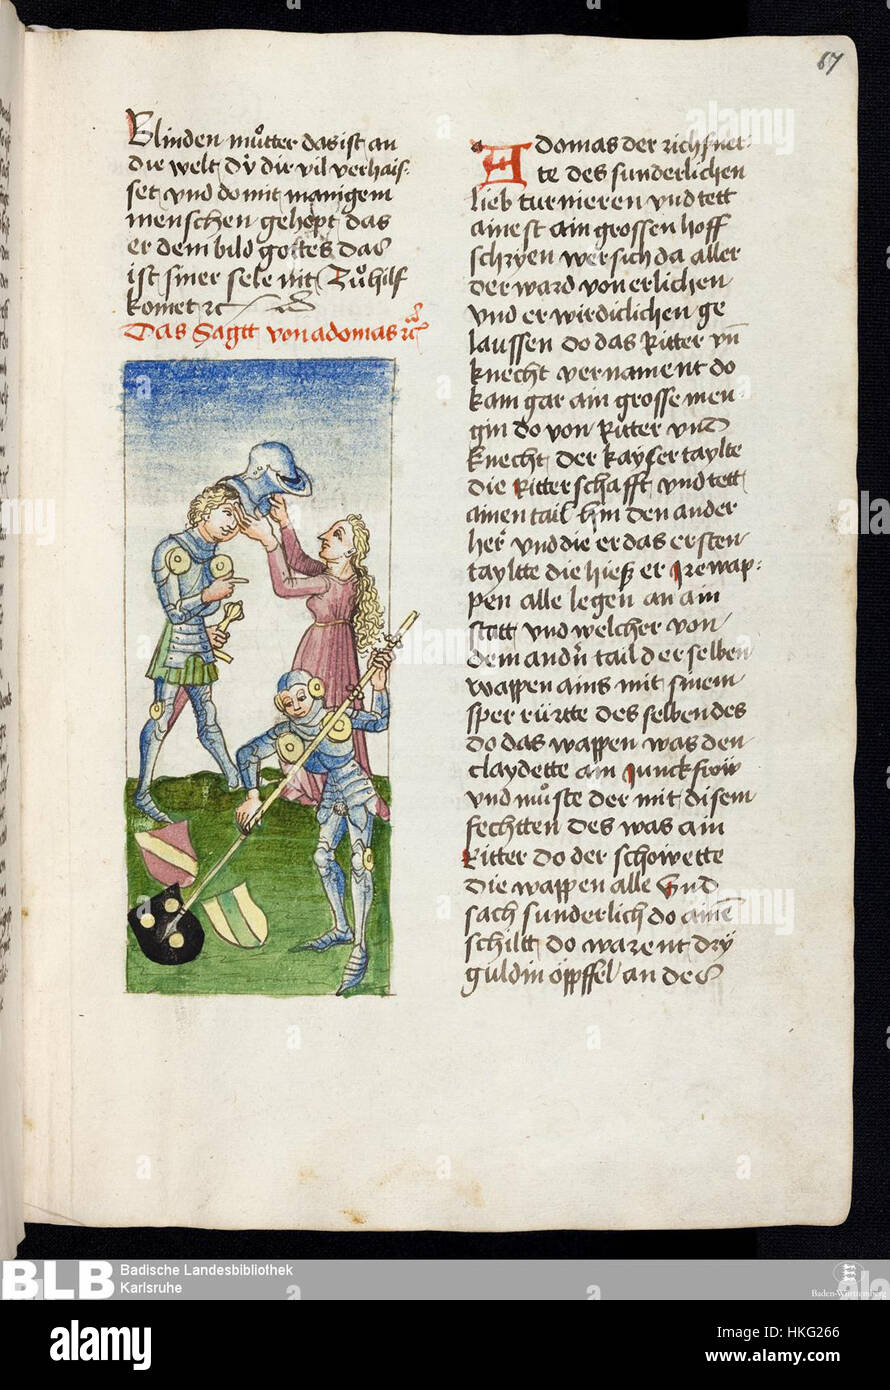 67
Blinden muͦtter das ist an
die welt Dÿ dir vil verhais:
set vnd do mit manigem
menschen gehept das
er dem bild gottes das
ist siner sele nit Zuͦ hilf
komet ꝛc
Das Sagtt von adomas ꝛc
Adomas der rich fiet
te des sunderlichen
lieb turnieren vnd tett
ainest ain grossen hoff
schryen wer sich da aller
der ward von erlichen
vnd er wirdiclichen ge
laussen do das Ritter vn̄
knecht vernament do
kam gar ain grosse men
gin do von Ritter vnd
knecht der kayser taylte
die Ritterschafft vnd tett
ainen tail hin den ander
her vnd die er das ersten
taylte die hiesz er Ire wap:
pen alle legen an ain
statt vnd welcher von
dem andn̄ tail der selben
wappen ains mit sinem
sper rürtte des selben des
do das wappen was den
claydette ain Junckfröw
vnd muͦste der mit disem
fechtten des was ain
Ritter do der schowette
die wappen alle Vnd
sach sunderlich do ainē
schiltt do warent drÿ
guldin öppffel an des
BLB Badische Landesbibliothek
Karlsruhe
Baden-Württemberg
alamy
Image ID: HKG266
www.alamy.com